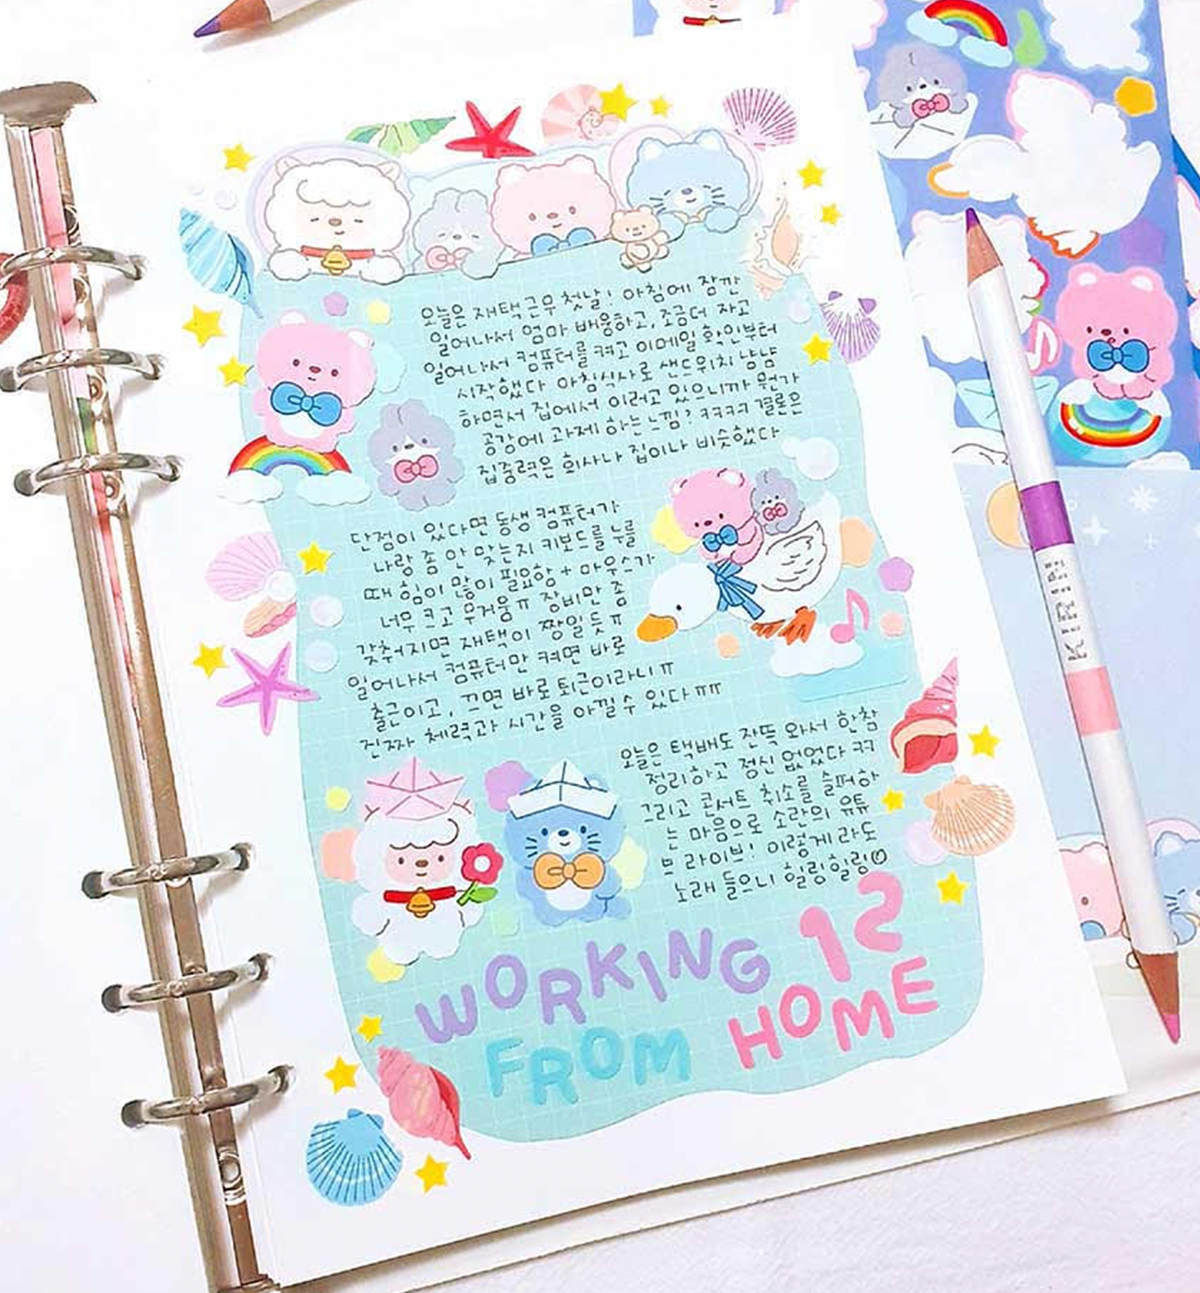 오늘은 재택근무 첫날! 아침에 잠깐
일어나서 엄마 배웅하고, 조금더 자고
일어나서 컴퓨터를 켜고 이메일 확인부터
시작했다 아침식사로 샌드위치 냠냠
하면서 집에서 이러고 있으니까 뭔가
공강에 과제 하는 느낌? ㅋㅋㅋㅋ 결론은
집중력은 회사나 집이나 비슷했다
단점이 있다면 동생 컴퓨터가
나랑 좀 안 맞는지 키보드를 누를
때 힘이 많이 필요함 + 마우스가
너무 크고 무거움ㅠ 장비만 좀
갖춰지면 재택이 짱일듯ㅠ
일어나서 컴퓨터만 켜면 바로
출근이고, 끄면 바로 퇴근이라니ㅠ
진짜 체력과 시간을 아낄수 있다ㅠㅠ
오늘은 택배도 잔뜩 와서 한참
정리하고 정신 없었다 ㅋㅋ
그리고 콘서트 취소를 슬퍼하
는 마음으로 소란의 유튜
브 라이브! 이렇게 라도
노래 들으니 힐링힐링
WORKING 12
FROM HOME